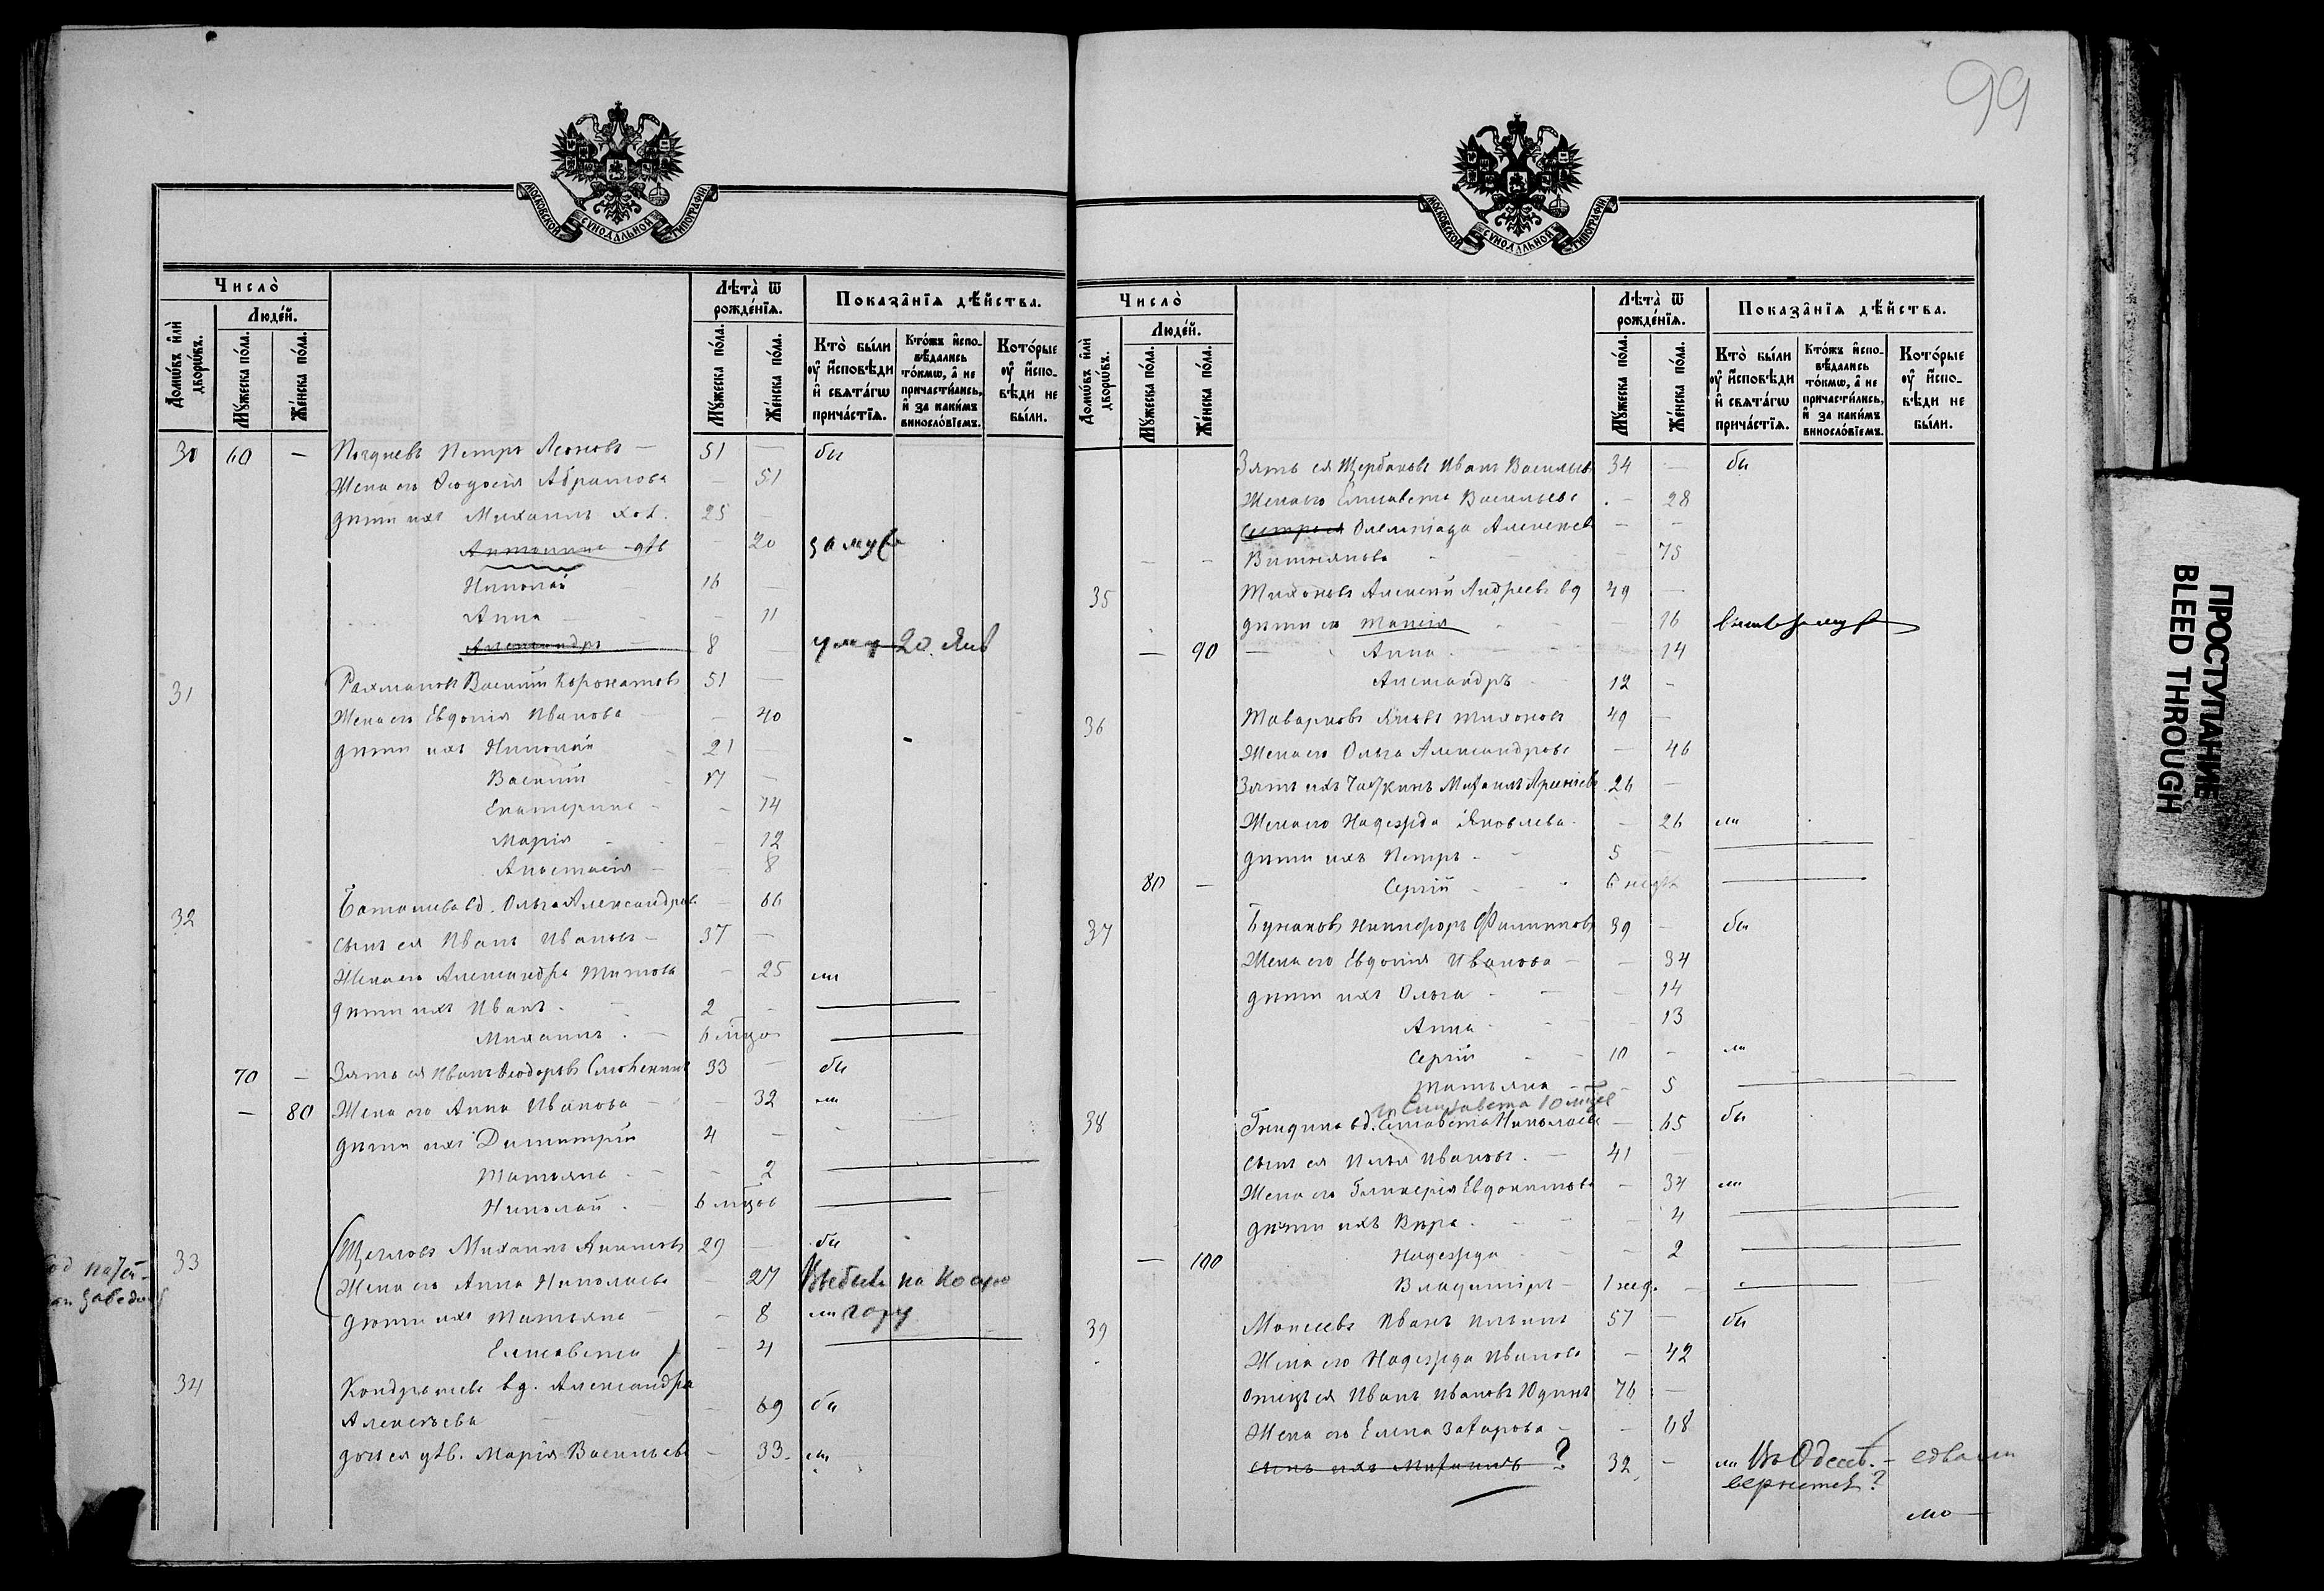 99
МОСКОВСКОЙ СѴНОДАЛЬНОЙ ТИПОГРАФІИ
Число̀
Люде́й.
Домѡ́въ и҆лѝ дворѡ́въ.
Мꙋ́жеска по́ла.
Же́нска по́ла.
Лѣта̀ ѿ рожде́нїѧ.
Мꙋ́жеска по́ла.
Же́нска по́ла.
Показа̑нїѧ дѣ́йства.
Кто̀ бы́ли ᲂу҆ и҆́сповѣди и҆ свѧта́гѡ прича́стїѧ.
Кто́жъ и҆сповѣ́дались то́кмѡ, а҆ не причасти́лись, и҆ за каки́мъ виносло́вїемъ.
Кото́рые ᲂу҆ и҆́сповѣди не бы́ли.
30 60 — Петръ Леоновъ — 51 — бы
Жена его Ѳеодосія Абрамова — 51
дѣти ихъ Михаилъ хол. 25 —
Антонина дѣв — 20 замуж
Николай 16 —
Анна — 11
Александръ 8 — умер 20 Янв
31 Рахманов Василій 51 —
Жена его Евдокія Иванова — 40
дѣти ихъ Николай 21 —
Василій 17 —
Екатерина — 14
Марія — 12
Анастасія — 8
32 вд. Ольга Александров — 66
сынъ ея Иванъ Ивановъ — 37 —
Жена его Александра Титова — 25 ли
дѣти ихъ Иванъ 2 —
Михаилъ 6 мцов
70 — Зять ея Иванъ Ѳеодоровъ 33 — бы
— 80 Жена его Анна Иванова — 32 ли
дѣти ихъ Димитрій 4 —
Татьяна — 2
Николай 6 мцов
33 Щегловъ Михаилъ 29 — бы
Жена его Анна Николаева — 27 на
дѣти ихъ Татьяна — 8 ли гору
Елисавета — 4
34 Кондратьева вд. Александра
Алексѣева — 69 бы
дочь ея дѣв. Марія Васильева — 33 ли
МОСКОВСКОЙ СѴНОДАЛЬНОЙ ТИПОГРАФІИ
Число̀
Люде́й.
Домѡ́въ и҆лѝ дворѡ́въ.
Мꙋ́жеска по́ла.
Же́нска по́ла.
Лѣта̀ ѿ рожде́нїѧ.
Мꙋ́жеска по́ла.
Же́нска по́ла.
Показа̑нїѧ дѣ́йства.
Кто̀ бы́ли ᲂу҆ и҆́сповѣди и҆ свѧта́гѡ прича́стїѧ.
Кто́жъ и҆сповѣ́дались то́кмѡ, а҆ не причасти́лись, и҆ за каки́мъ виносло́вїемъ.
Кото́рые ᲂу҆ и҆́сповѣди не бы́ли.
Зять ея Щербаковъ Иванъ Васильев 34 — бы
Жена его Елисавета Васильева — 28
сестра ея Олимпіада Алексѣев — —
— 75
35 Тихоновъ Алексій Андреевъ вд 49 —
дѣти его Таисія — 16
— 90 Анна — 14
Александръ 12 —
36 Яковъ Тихоновъ 49 —
Жена его Ольга Александрова — 46
Зять ихъ Михаилъ 26 —
Жена его Надежда Яковлева — 26 ли
дѣти ихъ Петръ 5 —
80 — Сергій 6 недѣл
37 Бунаковъ Никифоръ Филиппов 39 — бы
Жена его Евдокія Иванова — 34
дѣти ихъ Ольга — 14
Анна — 13
Сергій 10 — ли
Татьяна — 5
Елисавета 10 мцев
38 вд. Елисавета Николаева — 65 бы
сынъ ея Илья Ивановъ 41 —
Жена его Гликерія Евдокимова — 34 ли
дѣти ихъ Вѣра — 4
— 100 Надежда — 2
Владиміръ 1 нед. —
39 Моисеевъ Иванъ Ильинъ 57 — бы
Жена его Надежда Иванова — 42
отецъ ея Иванъ Ивановъ Юдинъ 76 —
Жена его Елена Захарова — 68
сынъ ихъ Михаилъ ? 32 — ли Въ Одесс. — едва ли
вернется?
ПРОСТУПАНИЕ
BLEED THROUGH